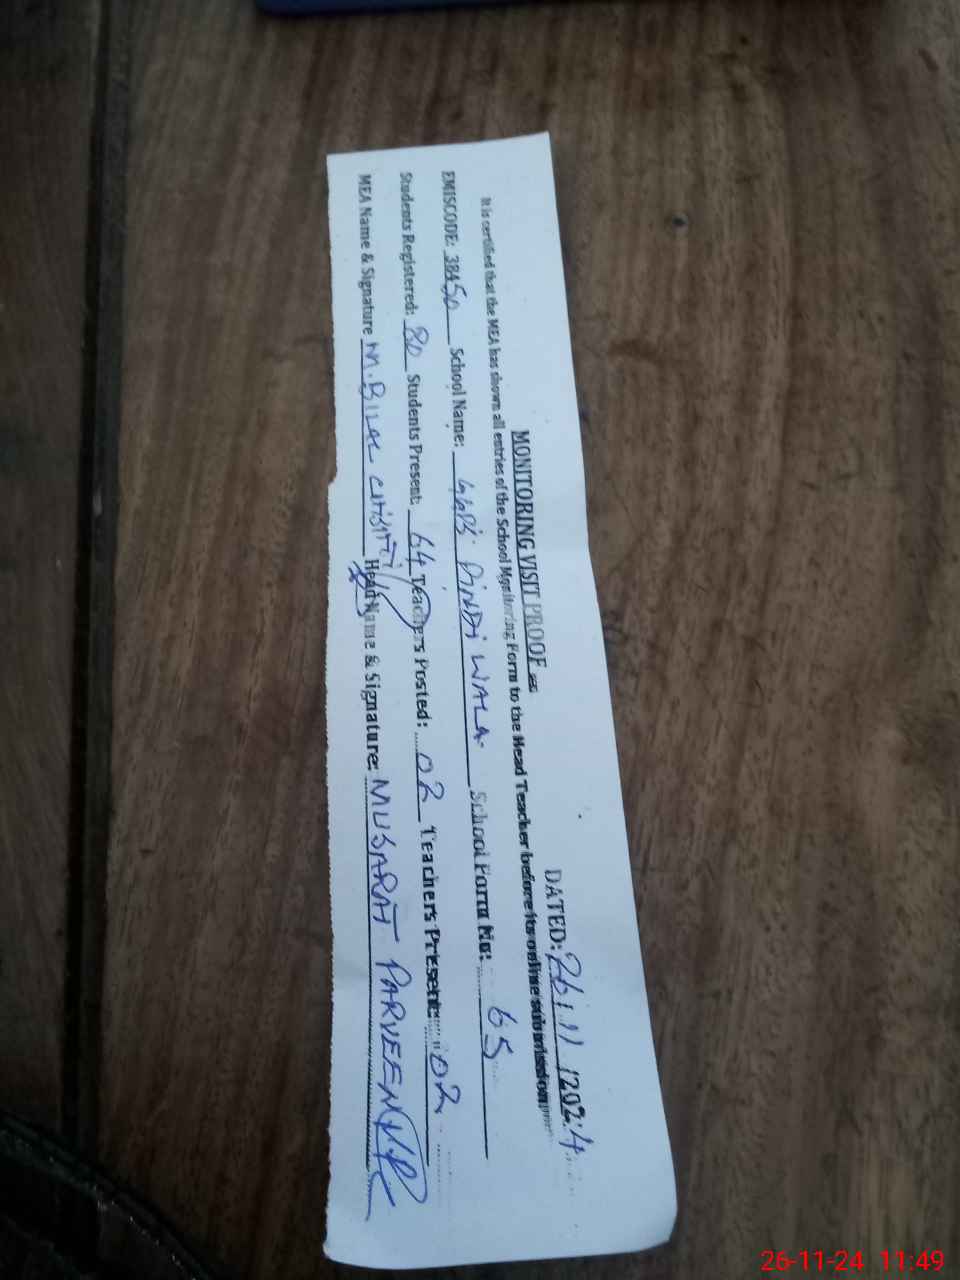 MONITORING VISIT PROOF
DATED: 26/11/2024
It is certified that the MEA has shown all entries of the School Monitoring Form to the Head Teacher before its online submission
EMISCODE: 38450 School Name: GGPS PINDI WALA School Form No: 65
Students Registered: 80 Students Present: 64 Teachers Posted: 02 Teachers Present: 02
MEA Name & Signature M. BILAL CHISHTI Head Name & Signature: MUSARAT PARVEEN
26-11-24 11:49